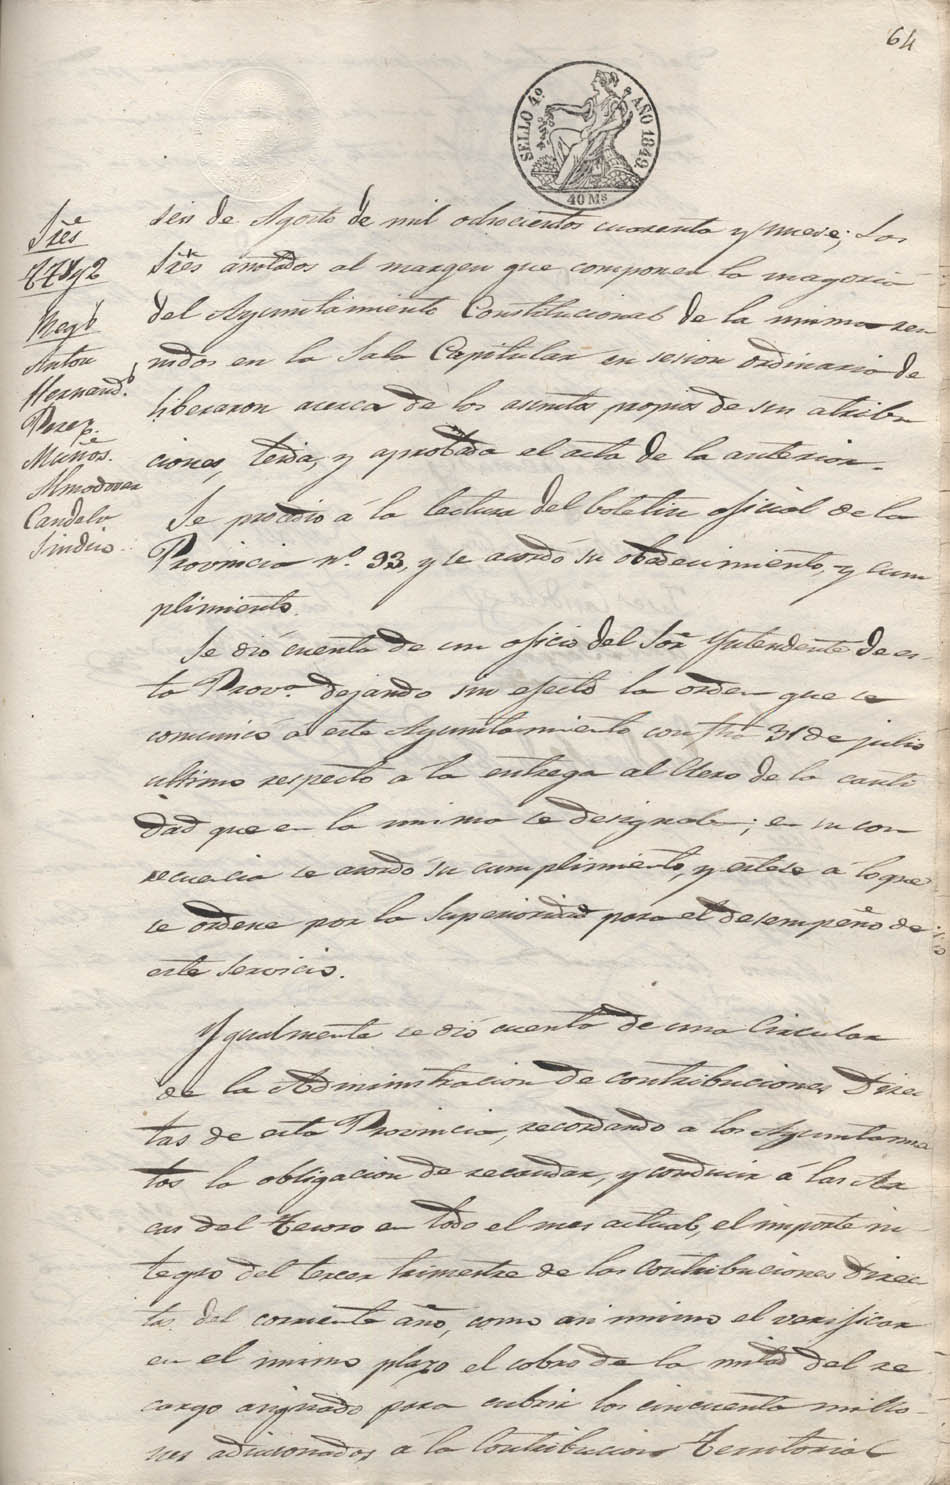 64
SELLO 4º AÑO 1849.
40 Ms
Sres
Regs
Anton
Hernandz
Perez.
Muños.
Almodover
Candela
Sindico.
seis de Agosto de mil ochocientos cuarenta y nueve; Los
Sres anotados al margen que componen la mayoria
del Ayuntamiento Constitucional de la misma reu
nidos en la Sala Capitular en sesion ordinaria de
liberaron acerca de los asuntos propios de sus atribu
ciones, leida, y aprobada el acta de la anterior.
Se prosedio á la lectura del boletin oficial de la
Provincia nº. 93, y se acordó su obedecimiento, y cum
plimiento.
Se dió cuenta de un oficio del Sor Yntendente de es-
ta Prova. dejando sin efecto la orden que se
comunicó á este Ayuntamiento con fha 31 de julio
ultimo respecto a la entrega al Clero de la canti
dad que en la misma se designaba; en su con
secuencia se acordo su cumplimiento, y estese á lo que
se ordene por la Superioridad para el desempeño de
este servicio.
Ygualmente se dió cuenta de una Circular
de la Administracion de contribuciones Direc
tas de esta Provincia, recordando a los Ayuntamie
tos la obligacion de recaudar, y conducir á las Ar
cas del Tesoro en todo el mes actual, el importe in-
tegro del tercer trimestre de las Contribuciones Direc
tas del corriente año, como asi mismo el verificar
en el mismo plazo el cobro de la mitad del re
cargo asignado para cubrir los cincuenta millo-
nes adicionados á la Contribucion Territorial